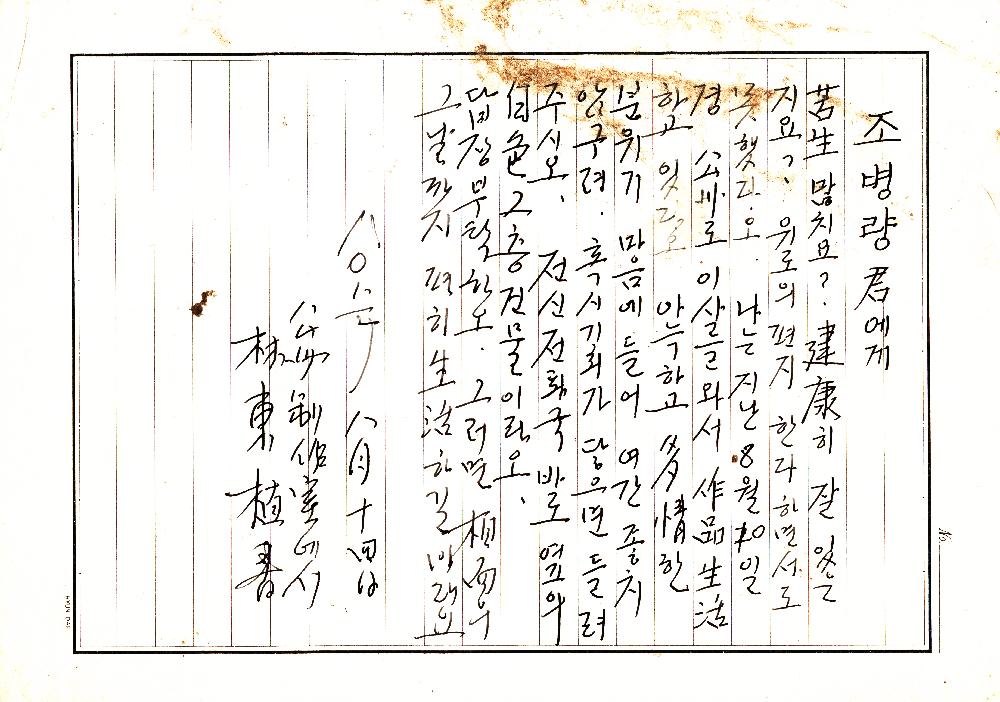 조병량 君에게
苦生 많치요? 健康히 잘 있는
지요? 위로의 편지 한다 하면서도
못했다오. 나는 지난 8월 10일
경 公州로 이살를 와서 作品生活
하고 있다오 아늑하고 多情한
분위기 마음에 들어 여간 좋치
않구려. 혹시 기회가 닿으면 들려
주시오. 전신전화국 바로 옆의
白色 2층 건물이라오.
답장 부탁하오. 그러면 相面의
그날까지 편히 生活하길 바래요
八月 十四日
公州 制作室에서
林東植 書